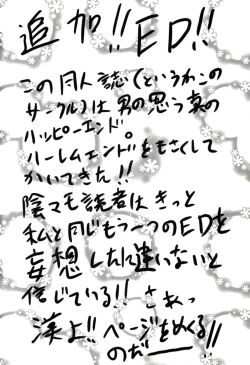 追加!!ED!!
この同人誌(というかこの
サークル)は男の思う真の
ハッピーエンド。
ハーレムエンドをもさくして
かいてきた!!
陰マモ読者はきっと
私と同じもう一つのEDを
妄想したに違いないと
信じている!! さあっ
漢よ!!ページをめくる
のだ──!!